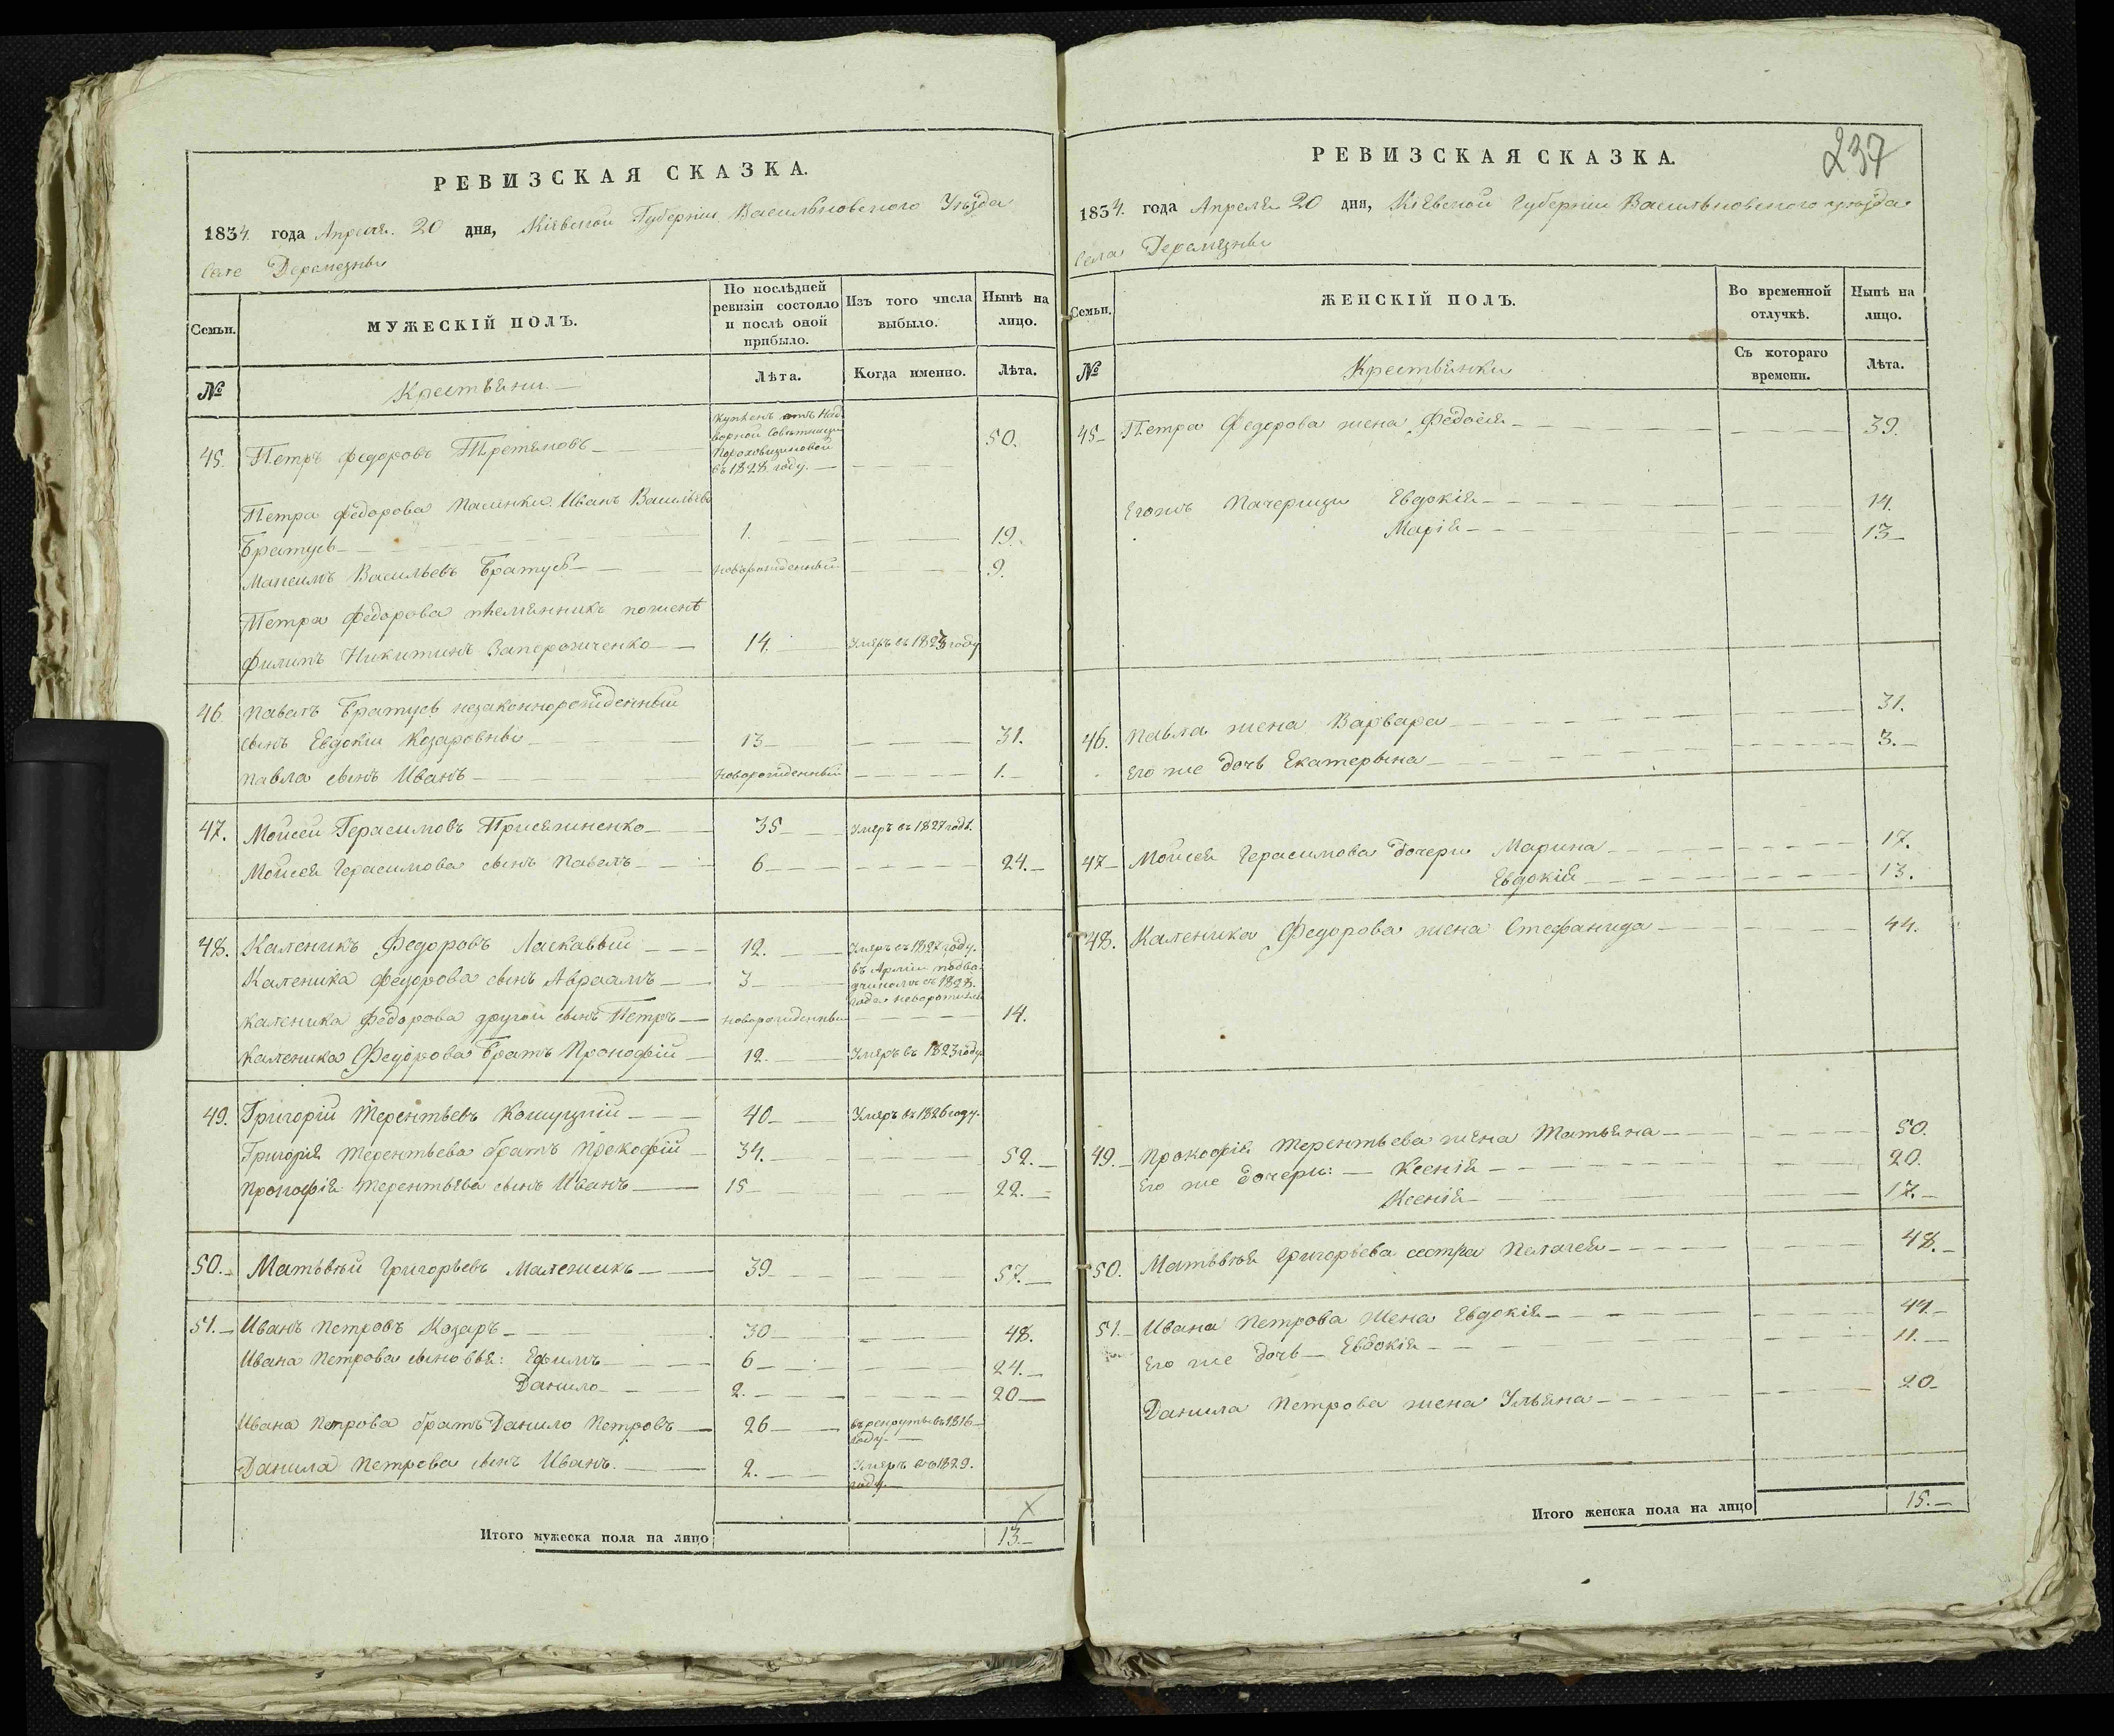 РЕВИЗСКАЯ СКАЗКА.
1834. года Апреля. 20 дня, Кіевской Губерніи Васильковского Уѣзда
Селе Деремезны
Семьи.
МУЖЕСКІЙ ПОЛЪ.
По послѣдней ревизіи состояло и послѣ оной прибыло.
Изъ того числа выбыло.
Нынѣ на лицо.
№
Крестьяни.
Лѣта.
Когда именно.
Лѣта.
45. Петръ Федоровъ Третяковъ 50.
Купленъ отъ Над
ворной Совѣтници
въ 1828 году.
Петра Федорова пасинки: Иванъ Васильевъ
Братусь 1. 19.
Максимъ Васильевъ Братусь новорожденный 9.
Петра Федорова племянникъ поженѣ
Филипъ Никитинъ Запорожченко 14. Умеръ въ 1823 году
46. Павелъ Братусь незаконнорожденный
сынъ Евдокіи Козаровны 13 31.
Павла сынъ Иванъ новорожденный 1.
47. Моисей Герасимовъ Присяжненко 35 Умеръ въ 1827 годѣ.
Моисея Герасимова сынъ Павелъ 6 24.
48. Каленикъ Федоровъ Ласкавый 12. Умеръ въ 1827 году.
Каленика Федорова сынъ Авраамъ 3
въ Арміи подво
дчикомъ въ 1828.
года
Каленика Федорова другой сынъ Петръ новорожденный 14.
Каленика Федорова братъ Прокофій 12. Умеръ въ 1823 году
49. Григорій Терентьевъ Кошуцкій 40 Умеръ въ 1826 году.
Григорія Терентьева братъ Прокофій 34. 52.
Прокофія Терентьева сынъ Иванъ 15 22.
50. Матьвѣй Григорьевъ Маленикъ 39 57.
51. Иванъ Петровъ Козаръ 30 48.
Ивана Петрова сыновья: Ефимъ 6 24.
Данило 2. 20
Ивана Петрова братъ Данило Петровъ 26 въ рекруты въ 1816
году.
Данила Петрова сынъ Иванъ. 2. Умеръ въ 1829.
году.
Итого мужеска пола на лицо 13.
237
РЕВИЗСКАЯ СКАЗКА.
1834. года Апреля 20 дня, Кіевской Губерніи Васильковского уѣзда
Села Деремезны
Семьи.
ЖЕНСКІЙ ПОЛЪ.
Во временной отлучкѣ.
Нынѣ на лицо.
№
Крестьянки
Съ котораго времени.
Лѣта.
45 Петра Федорова жена Федосія 39.
Егожъ Пачерици Евдокія 14.
Марія 13
46. Павла жена Варвара 31.
Его же дочь Екатерына 3.
47 Моисея Герасимова дочери Марина 17.
Евдокія 13.
48. Каленика Федорова жена Стефанида 44.
49. Прокофія Терентьева жена Татьяна 50.
Его же дочери: Ксенія 20.
Ксенія 17.
50. Матьвѣя Григорьева сестра Пелагея 48.
51. Ивана Петрова жена Евдокія 44.
Его же дочь Евдокія 11.
Данила Петрова жена Ульяна 20
Итого женска пола на лицо 15.